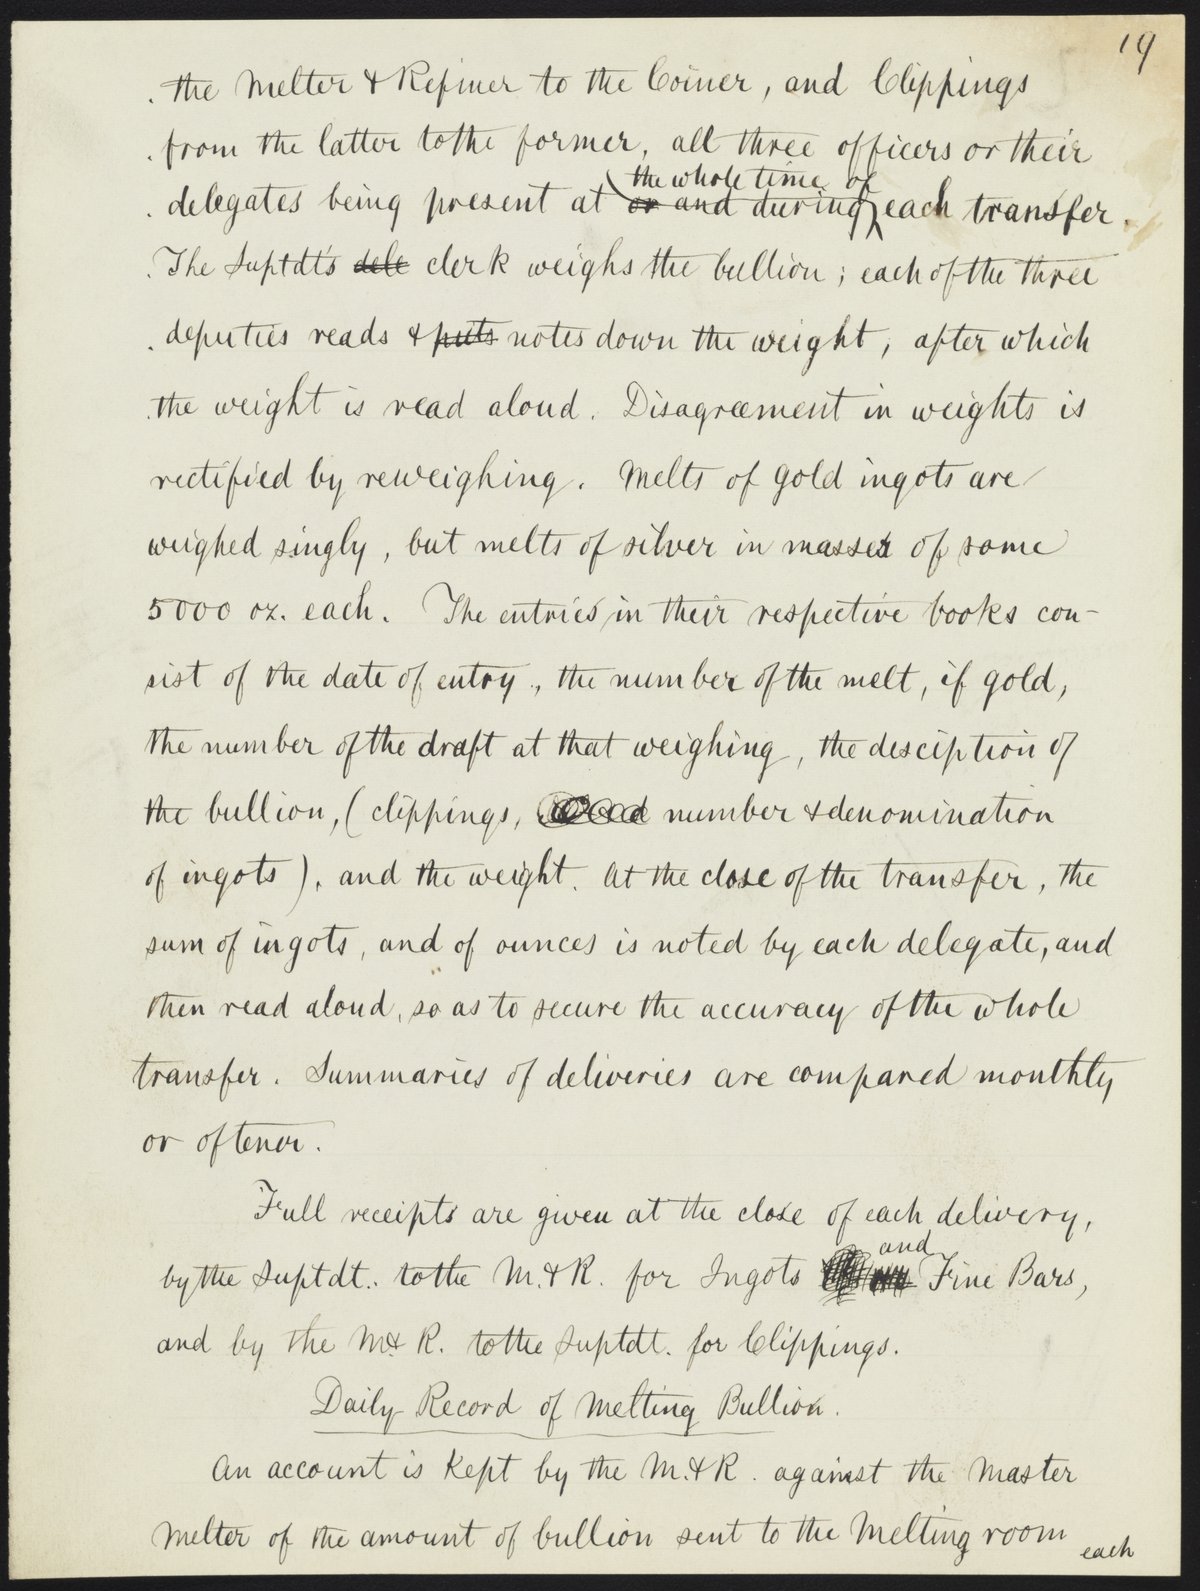 19
the Melter & Refiner to the Coiner, and Clippings
from the latter to the former, all three officers or their
the whole time of
delegates being present at or and during each transfer.
The Suptdt's dele clerk weighs the bullion; each of the three
deputies reads & puts notes down the weight, after which
the weight is read aloud. Disagreement in weights is
rectified by reweighing. Melts of gold ingots are
weighed singly, but melts of silver in masses of some
5000 oz. each. The entries in their respective books con-
sist of the date of entry, the number of the melt, if gold,
the number of the draft at that weighing, the desciption of
the bullion, (clippings, number & denomination
of ingots), and the weight. At the close of the transfer, the
sum of ingots, and of ounces is noted by each delegate, and
then read aloud, so as to secure the accuracy of the whole
transfer. Summaries of deliveries are compared monthly
or oftener.
Full receipts are given at the close of each delivery,
and
by the Suptdt. to the M. & R. for Ingots Fine Bars,
and by the M & R. to the Suptdt. for Clippings.
Daily Record of Melting Bullion.
An account is Kept by the M. & R. against the Master
Melter of the amount of bullion sent to the Melting room
each